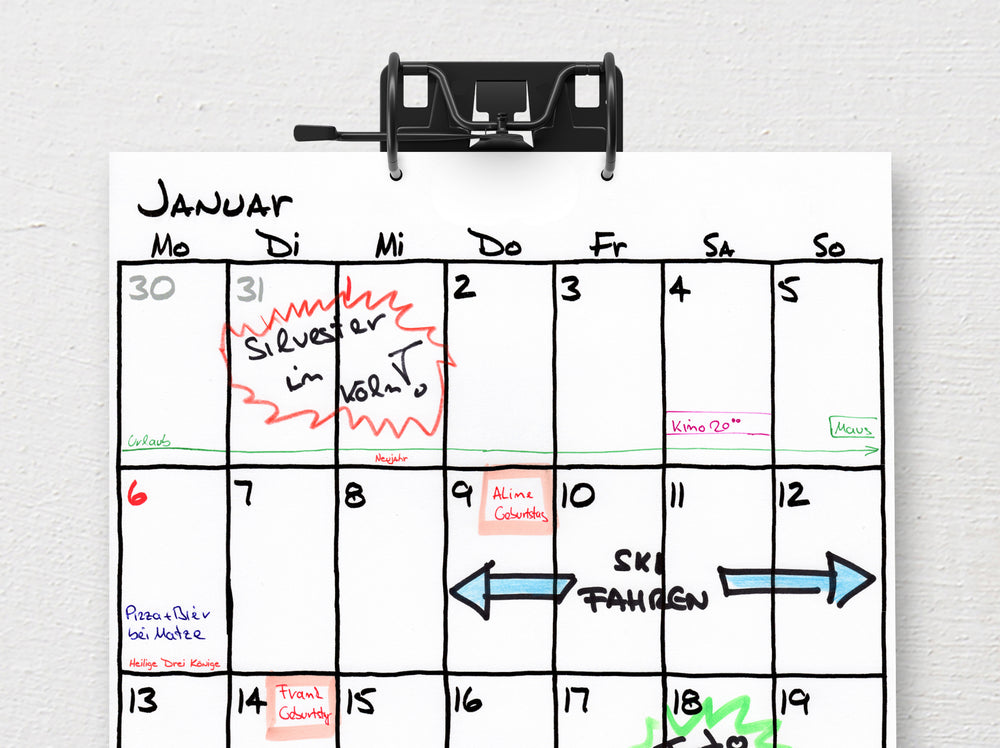 JANUAR
Mo Di Mi Do Fr SA So
30 31 1 2 3 4 5
Silvester
in Köln!
Kino 20⁰⁰
Maus
Urlaub
Neujahr
6 7 8 9 10 11 12
ALine
Geburtstag
SKI
FAHREN
Pizza + Bier
bei Matze
Heilige Drei Könige
13 14 15 16 17 18 19
Frank
Geburtstag